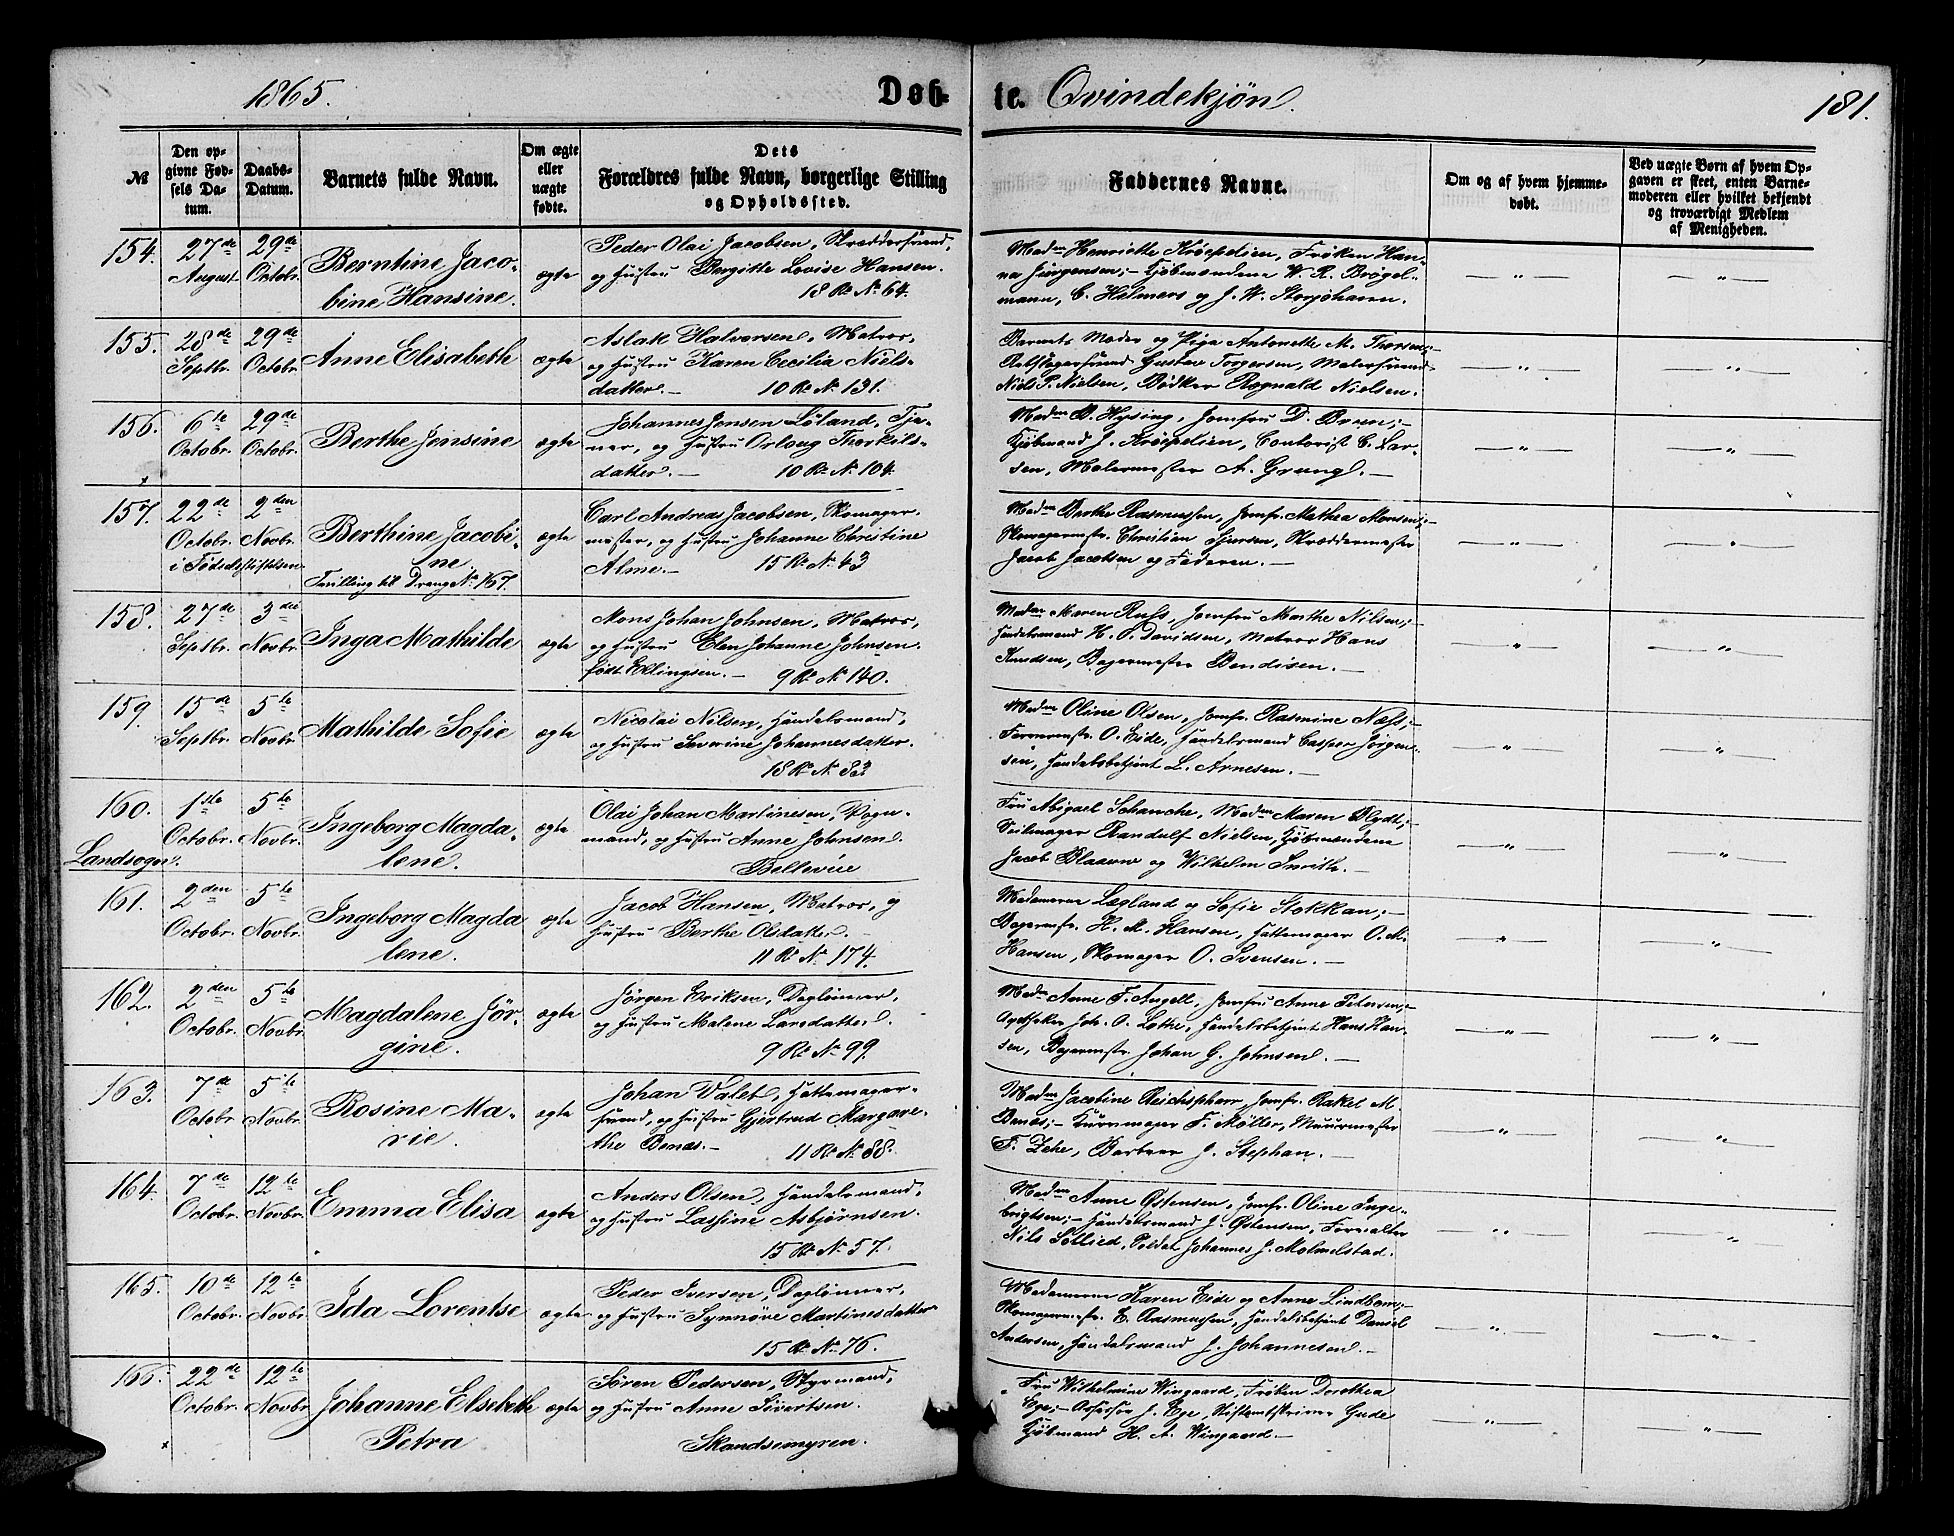 1865.
Døb-
te. Qvindekjøn.
181.
№
Den op-
givne Fød-
sels Da-
tum.
Daabs-
Datum.
Barnets fulde Navn.
Om ægte
eller
uægte
fødte.
Dets
Forældres fulde Navn, borgerlige Stilling
og Opholdssted.
Faddernes Navne.
Om og af hvem hjemme-
døbt.
Ved uægte Børn af hvem Op-
gaven er skeet, enten Barne-
moderen eller hvilket bekjendt
og troværdigt Medlem
af Menigheden.
154.
27de
August
29de
Octobr.
Berntine Jaco-
bine Hansine.
ægte
Peder Olai Jacobsen, Skræddersvend,
og Hustru Bergitte Lovise Hansen.
18 R. N. 64.
Madm Henriette Krøepelien, Frøken Han-
na Jürgensen;- Kjøbmændene W. R. Brøgel-
mann, C. Helmers og J. W. Storjohann.
155.
28de
Septbr.
29de
Octobr.
Anne Elisabeth
ægte
Aslak Halvorsen, Matros,
og Hustru Karen Cecilia Niels-
datter.- 10 R. N. 131.
Barnets Moder og Pige Antonette M. Thorsen;-
Rebslagersvend Gustav Torgersen, Malersvend
Niels P. Nielsen, Bødker Rognald Nielsen.
156.
6te
Octobr.
29de
Octobr.
Berthe Jensine
ægte
Johannes Jensen Løland, Tje-
ner, og Hustru Orloug Thorkils-
datter.- 10 R. N. 104.
Madm B. Hysing, Jomfru D. Breen;-
Kjøbmand J. Krøepelien, Contorist C. Lar-
sen, Malermester A. Grung.-
157.
22de
Octobr.
i Fødselsstiftelsen
2den
Novbr.
Berthine Jacobi-
ne.
Tvilling til Dreng N. 167.
ægte
Carl Andreas Jacobsen, Skomager-
mester, og Hustru Johanne Christine
Alme.- 15 R. N. 43
Madm Berthe Rasmussen, Jomfr. Mathea Monsen;-
Skomagermstr. Christian Iversen, Skræddermester
Jacob Jacobsen og Faderen.-
158.
27de
Septbr.
3die
Novbr.
Inga Mathilde
ægte
Mons Johan Johnsen, Matros,
og Hustru Elen Johanne Johnsen
født Ellingsen.- 9 R. N. 140.
Madm Maren Russ, Jomfru Marthe Nilsen;-
Handelsmand H. O. Davidsen, Matros Hans
Knudsen, Bagermester Bendixen.
159.
15de
Septbr.
5te
Novbr.
Mathilde Sofie
ægte
Nicolai Nilsen, Handelsmand,
og Hustru Severine Johannesdatter.
18 R. N. 83
Madm Oline Olsen, Jomfr. Rasmine Næss;-
Farvermstr. O. Eide, Handelsmand Casper Jørgen-
sen, Handelsbetjent L. Arnesen.-
160.
Landsogn.
1ste
Octobr.
5te
Novbr.
Ingeborg Magda-
lene.
ægte
Olai Johan Martinesen, Vogn-
mand, og Hustru Anne Johnsen.
Bellevue
Fru Abigael Schancke, Madm Maren Blydt;-
Seilmager Randulf Nielsen, Kjøbmændene
Jacob Blaauw og Wilhelm Smith.-
161.
2den
Octobr.
5te
Novbr.
Ingeborg Magda
lene.
ægte
Jacob Hansen, Matros, og
Hustru Berthe Olsdatter.-
11 R. N. 174.
Madamerne Lægland og Sofie Stokkan;-
Bagermstr. H. M. Hansen, Hattemager O. M.
Hansen, Skomager O. Svensen.-
162.
2den
Octobr.
5te
Novbr.
Magdalene Jør-
gine.
ægte
Jørgen Eriksen, Dagløinner,
og Hustru Malene Larsdatter.-
9 R. N. 99.
Madm Anne F. Angell, Jomfru Anne Petersen;-
Apotheker Joh. O. Lothe, Handelsbetjent Hans Han-
sen, Bagermstr. Johan G. Johnsen.-
163.
7de
Octobr.
5te
Novbr.
Rosine Ma-
rie.
ægte
Johan Valet, Hattemager-
svend, og Hustru Gjertrud Margare-
the Benæs.- 11 R. N. 88.
Madm Jacobine Reichspharr, Jomfr. Rakel M.
Benæs;- Kurvmager F. Møller, Muurmester
F. Zehe, Barbeer J. Stephan.-
164.
7de
Octobr.
12te
Novbr.
Emma Elisa
ægte
Anders Olsen, Handelsmand,
og Hustru Lassine Asbjørnsen.
15 R. N. 57.
Madm Anne Østensen, Jomfr. Oline Inge-
brigtsen;- Handelsmand J. Østensen, Forvalter
Nils Sollied, Soldat Johannes J. Molmelstad.
165.
10de
Octobr.
12te
Novbr.
Ida Lorentse
ægte
Peder Iversen, Dagløinner,
og Hustru Synnøve Martinesdatter
15 R. N. 76.
Madamerne Karen Eide og Anne Lindbom;-
Skomagermstr. E. Rasmussen, Handelsbetjent Daniel
Andersen, Handelsmand J. Johannesen.-
166.
22de
Octobr.
12te
Novbr.
Johanne Elsebeth
Petra
ægte
Søren Pedersen, Styrmand,
og Hustru Anne Sivertsen.
Skandsemyren.
Fru Wilhelmine Wingaard, Frøken Dorothea
Ege;- Assessor J. Ege, Stiftamtskriver Gude
Kjøbmand H. A. Wingaard.-